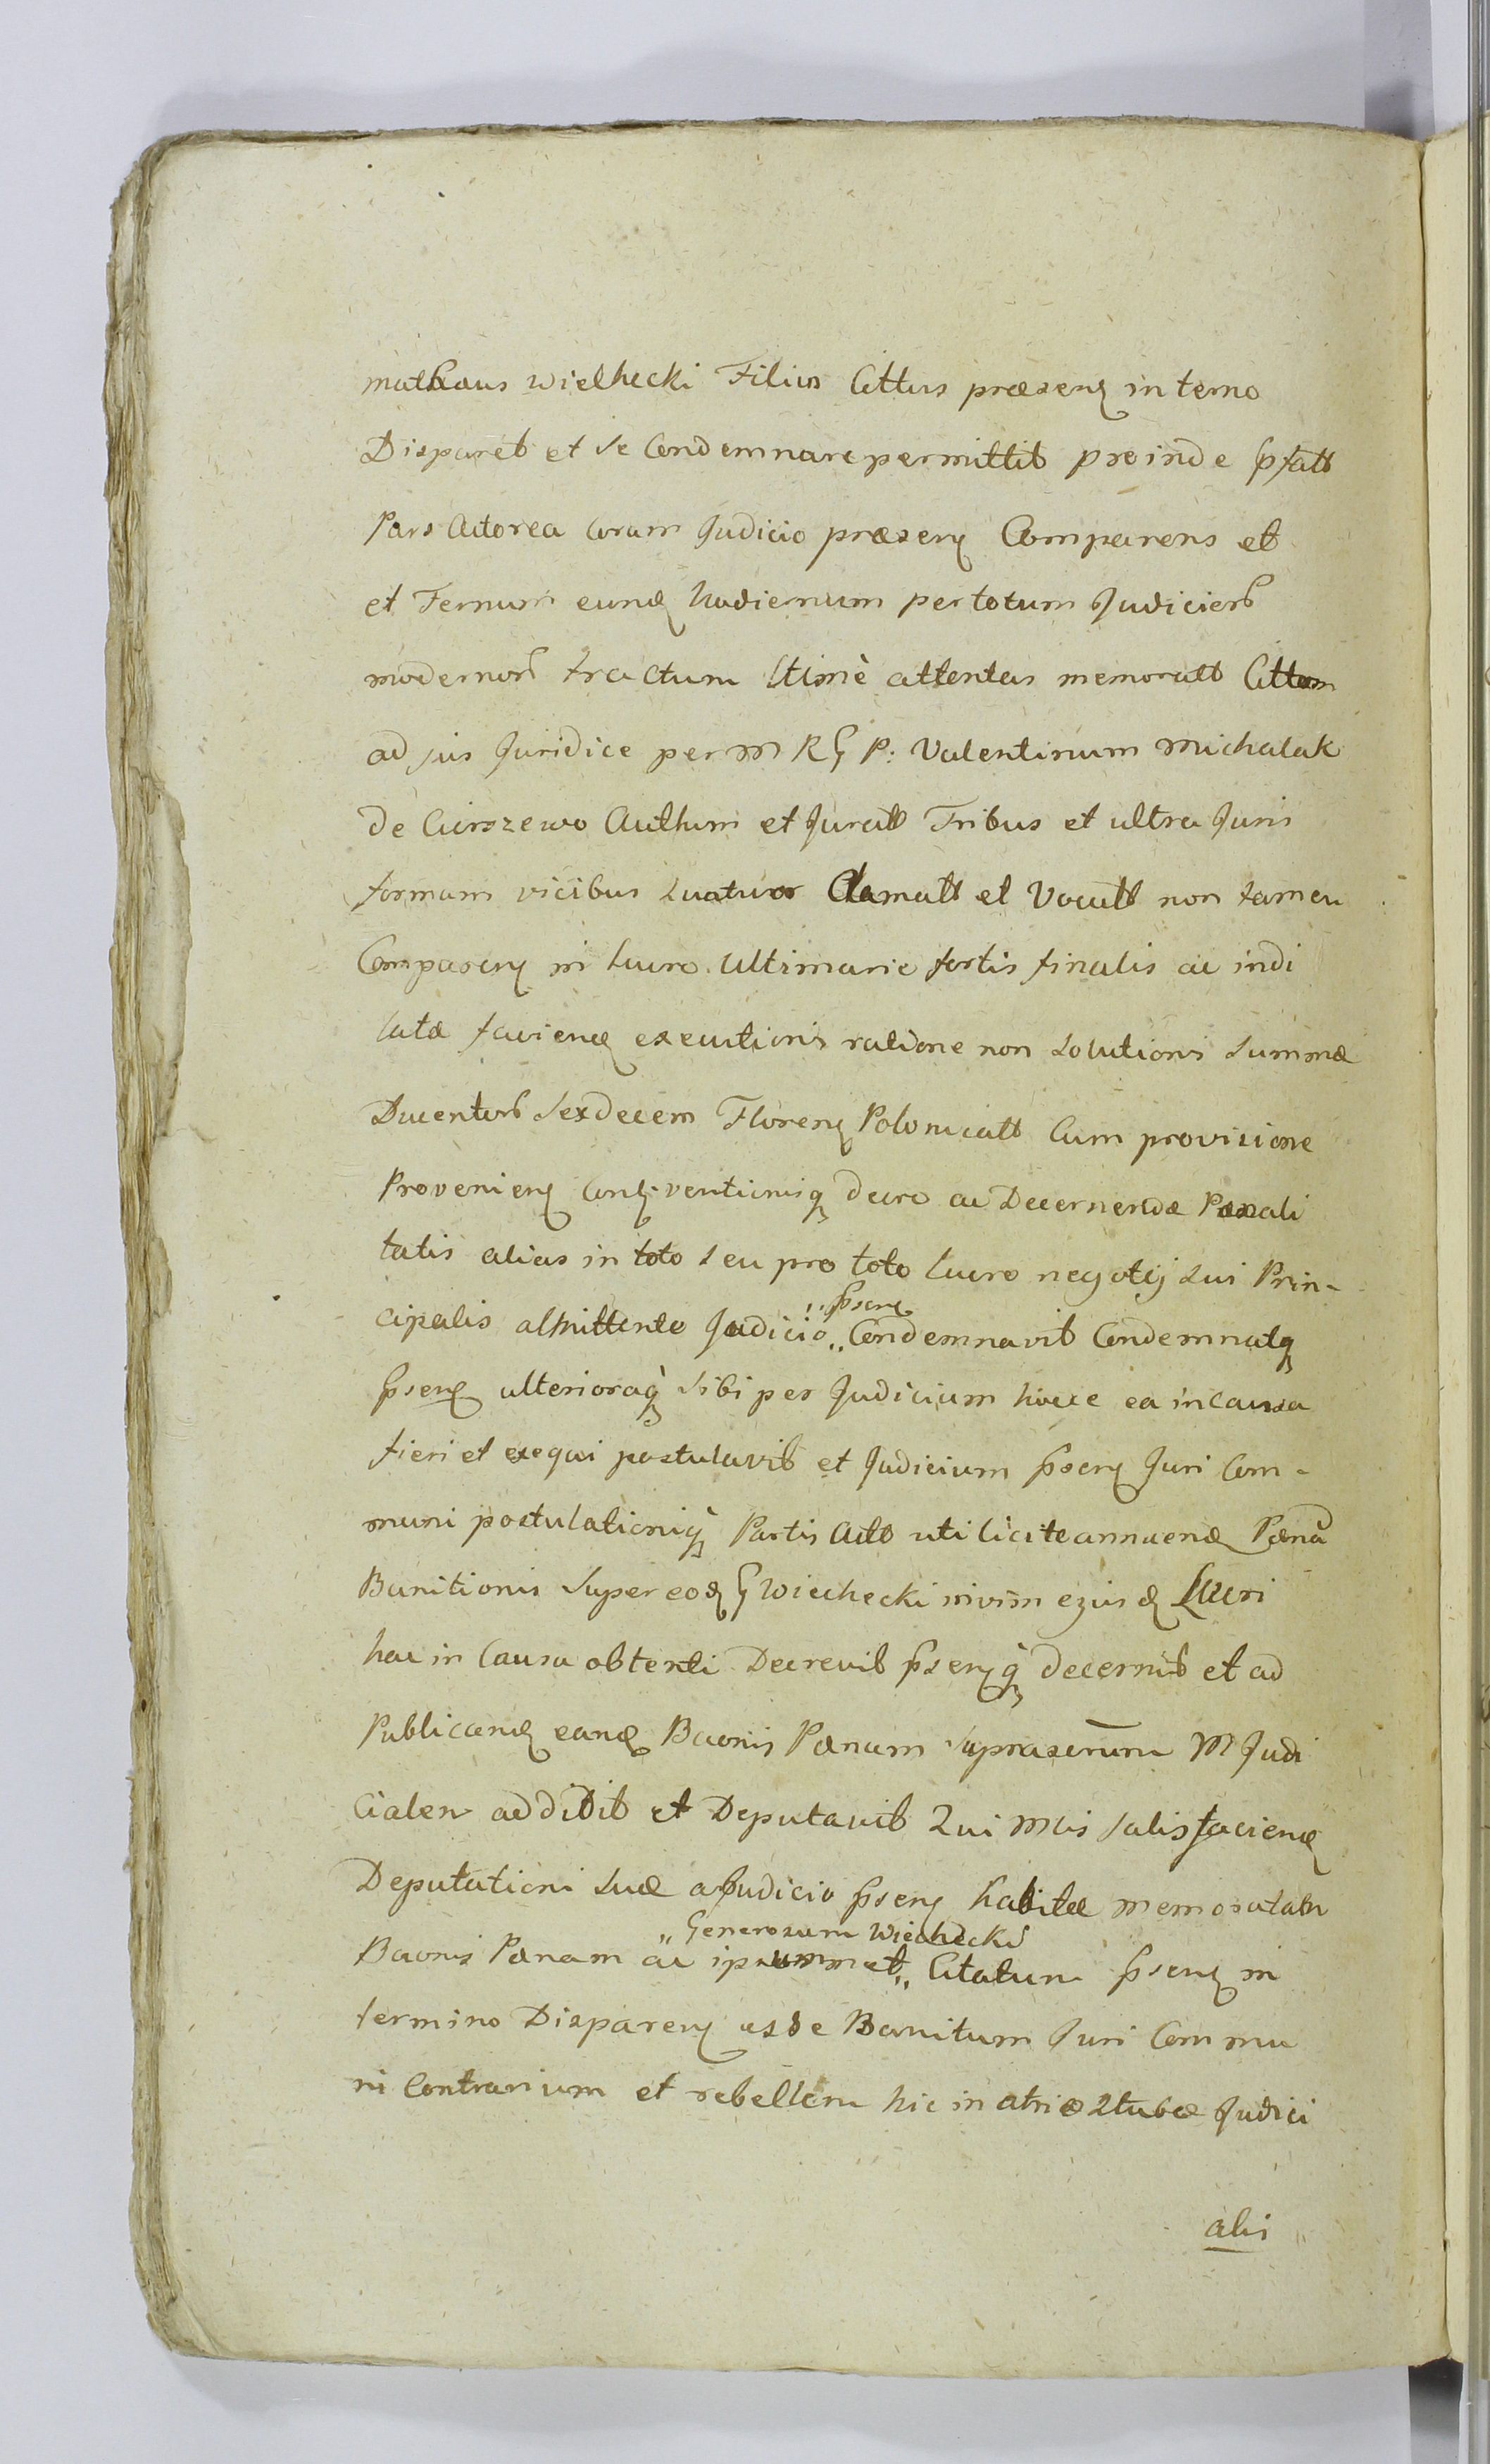 mathaus Wielhecki Filius Cittus præsenz in terno
Disparet et se Condemnare permittit proinde pfatt
Pars Actorea Coram Judicio præsenz Comparens et
et Ternum eundz hodiernum per totum Judiciorb
modernorb tractum Ltimè attentas memoratt Cittum
ad jus Juridice per M R G P: Valentinum Michalak
de authum et Juratt Tribus et ultra Juris
formam vicibus quatuor Clamatt et Vocatt non tamen
Comparenz in lucro Ultimarie sortis finalis ac indi
latæ faciendz executionis ratione non solutionis summæ
Ducentorb sexdecem Florenz Polonicatt Cum provisione
Provenienz ventionisq decro ac Decernendæ Pænali
tatis alias in toto seu pro toto lucro negotij sui Prin-
cipalis admittente Judicio ,, psenz ,, Condemnavit Condemnatq
psenz ulterioraq sibi per Judicium hocce ea in causa
fieri et exequi postulavit et Judicium psenz Juri Com-
muni postulationiq Partis Acto uti licite annuendz Pænã
Banitionis super eodz G Wiechecki nivim ejusdz Lucri
hac in Causa obtenti Decrevit psenzq decernit et ad
Publicandz eandz Baonis Pænam M Judi
cialen addidit et Deputavit Qui Mlis satisfaciendz
Deputationi suæ a Judicio psenz habitæ memoratam
Baonis Pænam ac ipsummet ,, Generosum Wiechecki ,, Citatum psenz in
termino Disparenz esse Banitum Juri Commu
ni Contrarium et rebellem hic in atrio Stubæ Judici
alis